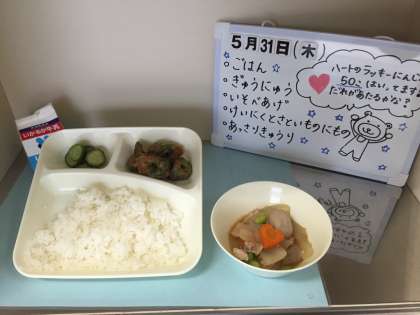 5月31日(木)
☆ごはん☆
☆ぎゅうにゅう
☆いそべあげ
☆けいにくとさといものにもの
☆あっさりきゅうり
ハートのラッキーにんじん
50こはいってます
だれがあたるかな?